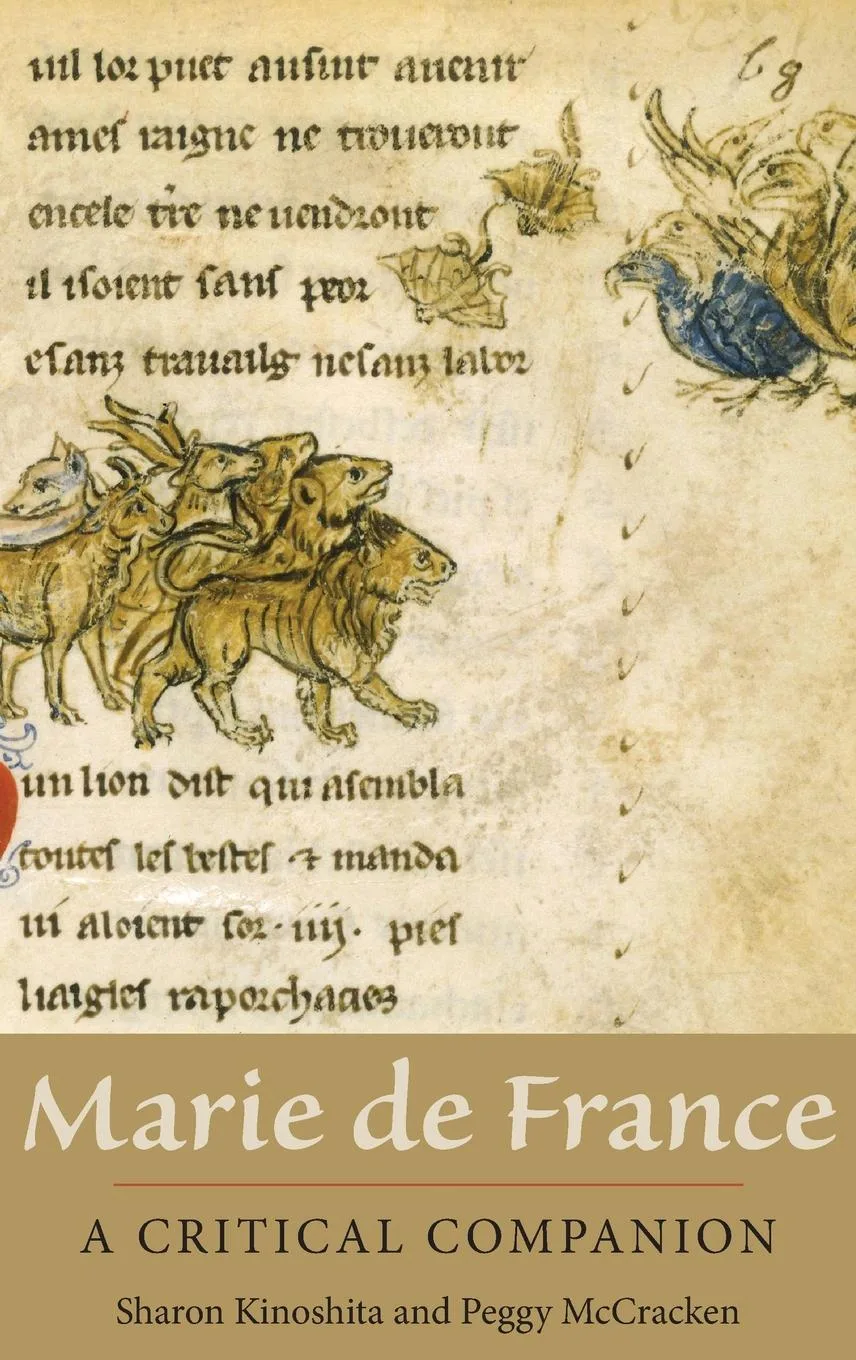 uil lor puet ausint auenir
ames iaigne ne troueront
encele tre ne uendront
il isoient sans peor
esanz trauailg nesanz labor
68
un lion dist qui asembla
toutes les bestes ⁊ manda
ui aloient sor · iiij · pies
Marie de France
A CRITICAL COMPANION
Sharon Kinoshita and Peggy McCracken